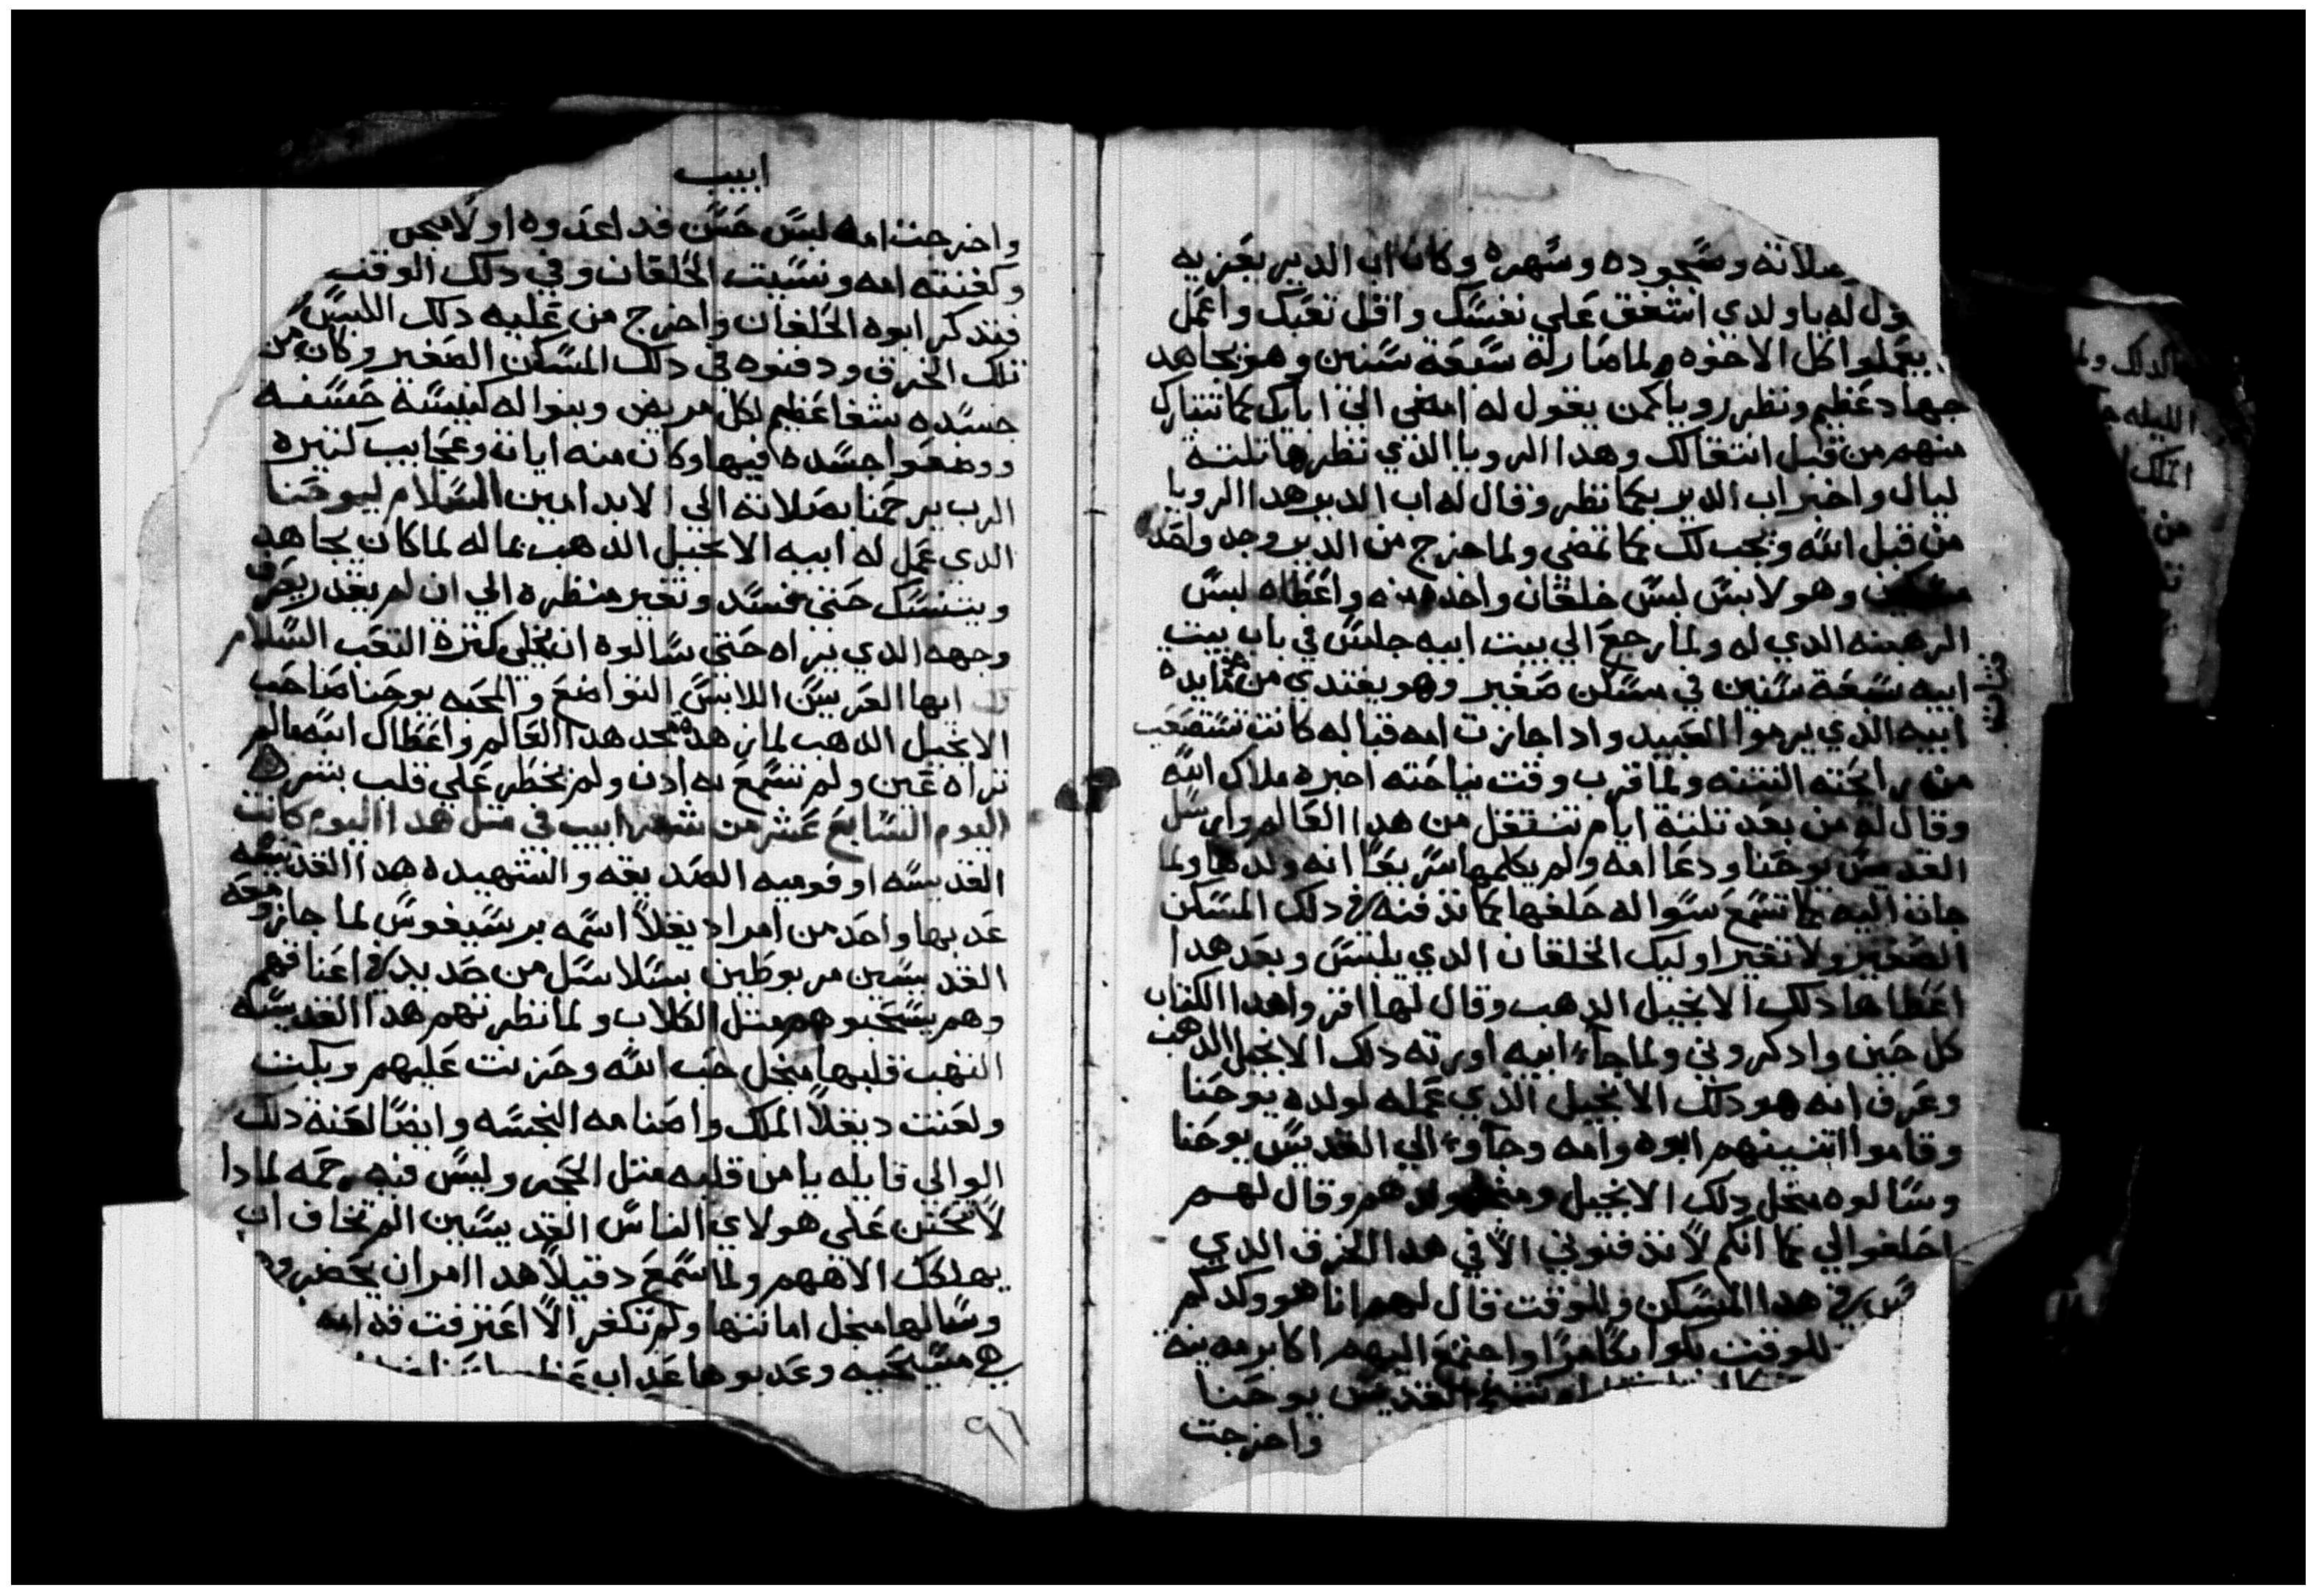 صلاته وسجوده وسهره وكان اب الدير يعزيه
ول له يا ولدي اشفق علي نفسك واقل تعبك واعمل
يعملوا كل الاخوه ولما صار له سبعة سنين وهو يجاهد
جهاد عظيم ونظر رويا كمن يقول له امضي الي ابايك كما تتبارك
منهم من قبل انتقالك وهدا الرويا الذي نظرها تلتة
ليال واخبر اب الدير بكما نظر وقال له اب الدير هدا الرويا
من قبل الله ويجب لك كما تمضي ولما خرج من الدير وجد واحد
مسكين وهو لابس لبس خلقان واخده منه واعطاه لبس
الرهبنه الدي له ولما رجع الي بيت ابيه جلس في باب بيت
ابيه سبعة سنين في مسكن صغير وهو يغتدي من فتات مايدة
ابيه الدي يرموا العبيد وادا جازت امه قباله كانت تستصعب
من رايحته النتنه ولما قرب وقت نياحته اخبره ملاك الله
وقال له من بعد تلتة ايام تنتقل من هدا العالم وارسل
القديس يوحنا ودعا امه ولم يكلمها سريعا انه ولدها ولما
جات اليه كما تسمع سواله حلفها كما تدفنه في دلك المسكن
الصغير ولا تغير اوليك الخلقان الدي يلبس وبعد هدا
اعطاها دلك الانجيل الدهب وقال لها اقروا هدا الكتاب
كل حين وادكروني ولما جاء ابيه اورته دلك الانجيل الدهب
وعرف انه هو دلك الانجيل الدي عمله لولده يوحنا
وقاموا اتنينهم ابوه وامه وجاوء الي القديس يوحنا
وسالوه منجل دلك الانجيل ومنجل ولدهم وقال لهم
احلفوا لي كما انكم لا تدفنوني الا في هدا الخرق الدي
في هدا المسكن وللوقت قال لهم انا هو ولدكم
للوقت بكوا بكا مرا واجتمع اليهم اكابر مدينة
القديس يوحنا
واخرجت
ابيب
واخرجت امه لبس حسن قد اعدوه اولا
وكفنته امه ونسيت الخلقان وفي دلك الوقت
فتدكر ابوه الخلقان واخرج من عليه دلك اللبس
تلك الخرق ودفنوه في دلك المسكن الصغير وكان من
جسده شفا عظيم لكل مريض وبنوا له كنيسة حسنه
ووضعوا جسده فيها وكان منه ايات وعجايب كتيره
الرب يرحمنا بصلاته الي الابد امين السلام ليوحنا
الدي عمل له ابيه الانجيل الدهب بماله لما كان يجاهد
ويتنسك حتي فسد وتغير منظره الي ان لم يقدر يعرف
وجهه الدي يراه حتي سالوه ان يخلي كترة التعب السلام
لك ايها العريس اللابس التواضع والمحبه يوحنا صاحب
الانجيل الدهب لما زهد مجد هدا العالم واعطاك الله مالم
تراه عين ولم تسمع به ادن ولم يخطر علي قلب بشر
اليوم السابع عشر من شهر ابيب في متل هدا اليوم كانت
القديسه اوفوميه الصديقه والشهيده هدا القديسه
عدبها واحد من امرا ديغلا اسمه برسيفوس لما جاز ومعه
القديسين مربوطين بسلاسل من حديد في اعناقهم
وهم يسحبوهم متل الكلاب ولما نظرتهم هدا القديسه
التهب قلبها منجل حب الله وحزنت عليهم وبكت
ولعنت ديغلا الملك واصنامه النجسه وايضا لعنة دلك
الوالي قايله يا من قلبه متل الحجر وليس فيه رحمه لمادا
لا تحنن علي هولاي الناس القديسين الم تخاف ان
يهلكك الاههم ولما سمع دقيلا هدا امر ان يحضروها
وسالها منجل امانتها ولم تكفر الا اعترفت قدامه
مسيحيه وعدبوها عداب
٩٦